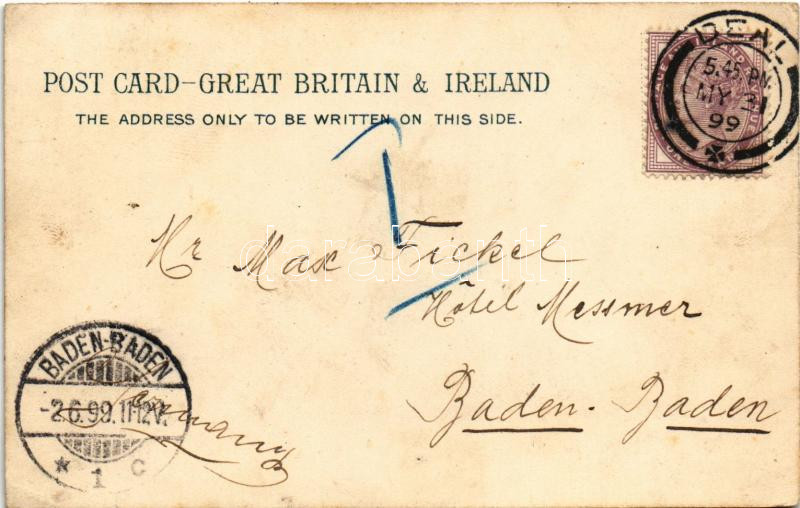 POST CARD–GREAT BRITAIN & IRELAND
THE ADDRESS ONLY TO BE WRITTEN ON THIS SIDE.
DEAL
5.45 PM
MY 31
99
Hr Max Fickel
Hôtel Messmer
Baden-Baden
Germany
BADEN-BADEN
-2.6.99.11-12V.
* 1 c
darabanth